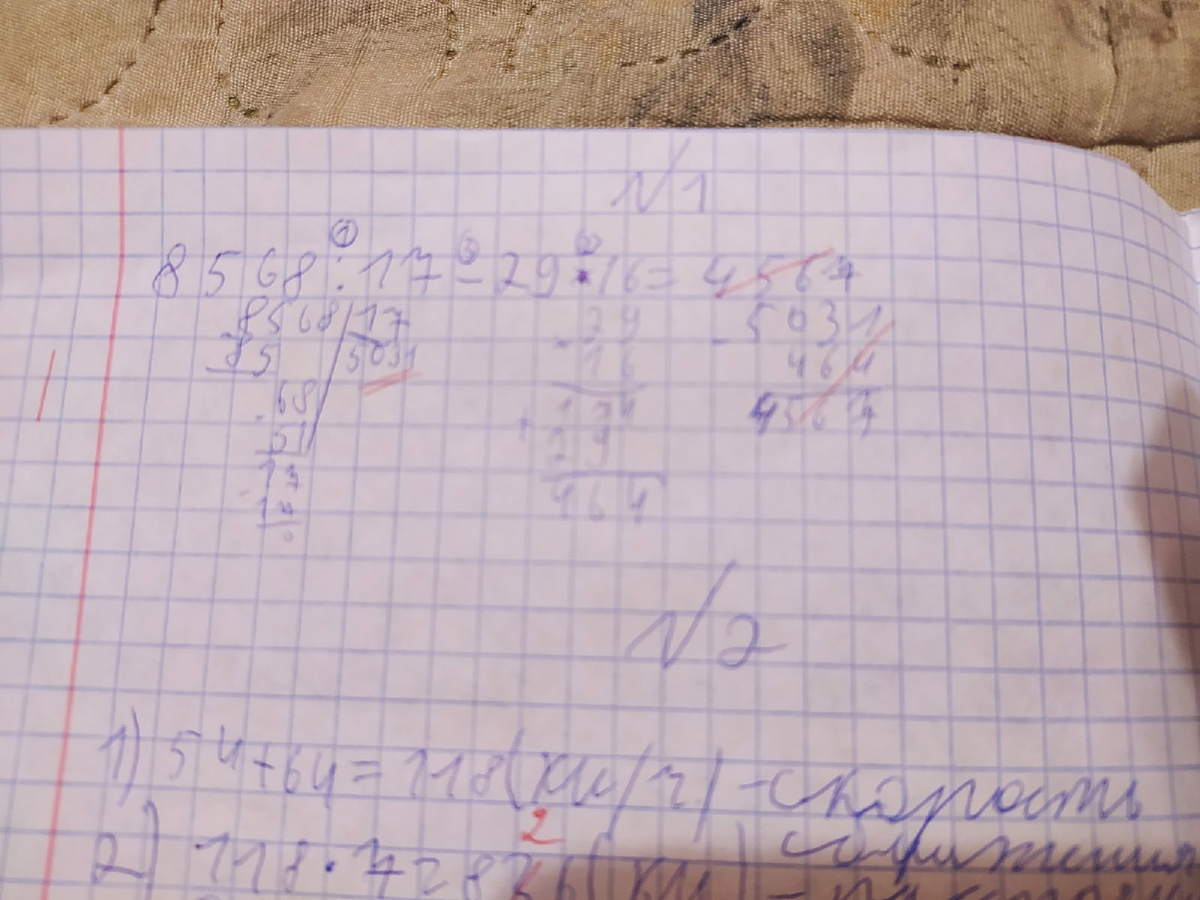 №1
① ③ ②
8568:17-29·16=4567
8568 17 29 5031
85 5031 16 464
68 174 4567
51 29
17 464
17
0
№2
1) 54+64=118(км/ч)-скорость
2
сближения
2) 118·7=826(км)-